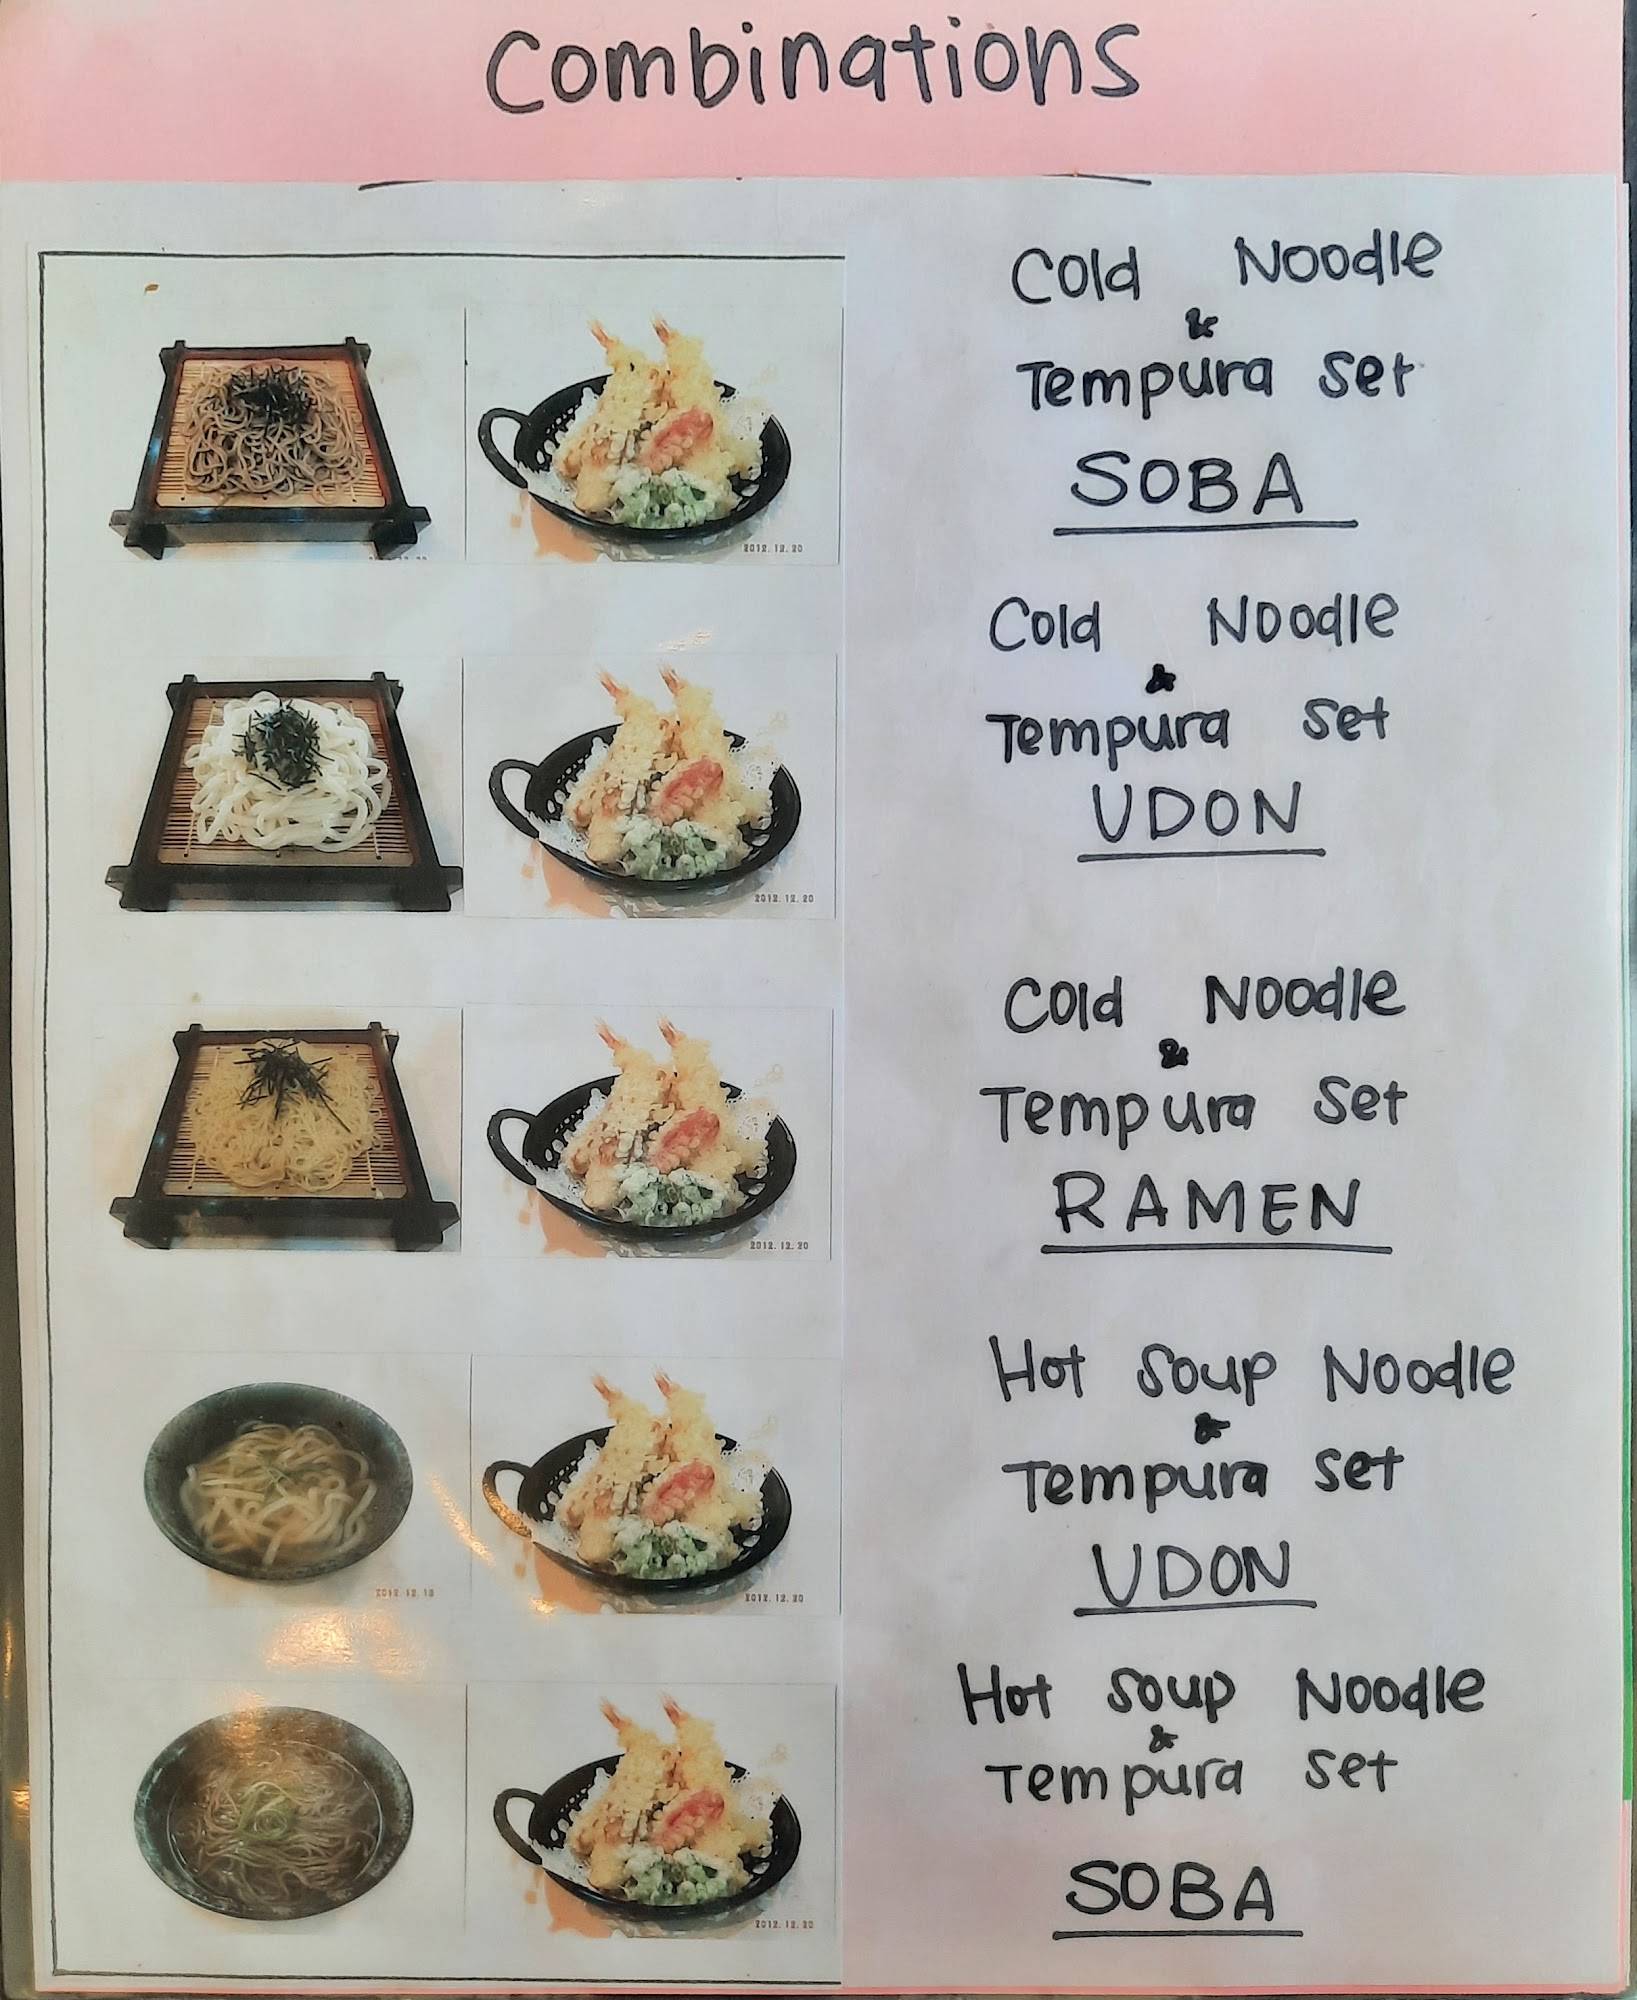 Combinations
Cold Noodle
&
Tempura Set
SOBA
2012.12.20
Cold Noodle
&
Tempura Set
UDON
2012.12.20
Cold Noodle
&
Tempura Set
RAMEN
2012.12.20
Hot Soup Noodle
&
Tempura Set
UDON
2012.12.18 2012.12.20
Hot Soup Noodle
&
Tempura Set
SOBA
2012.12.20